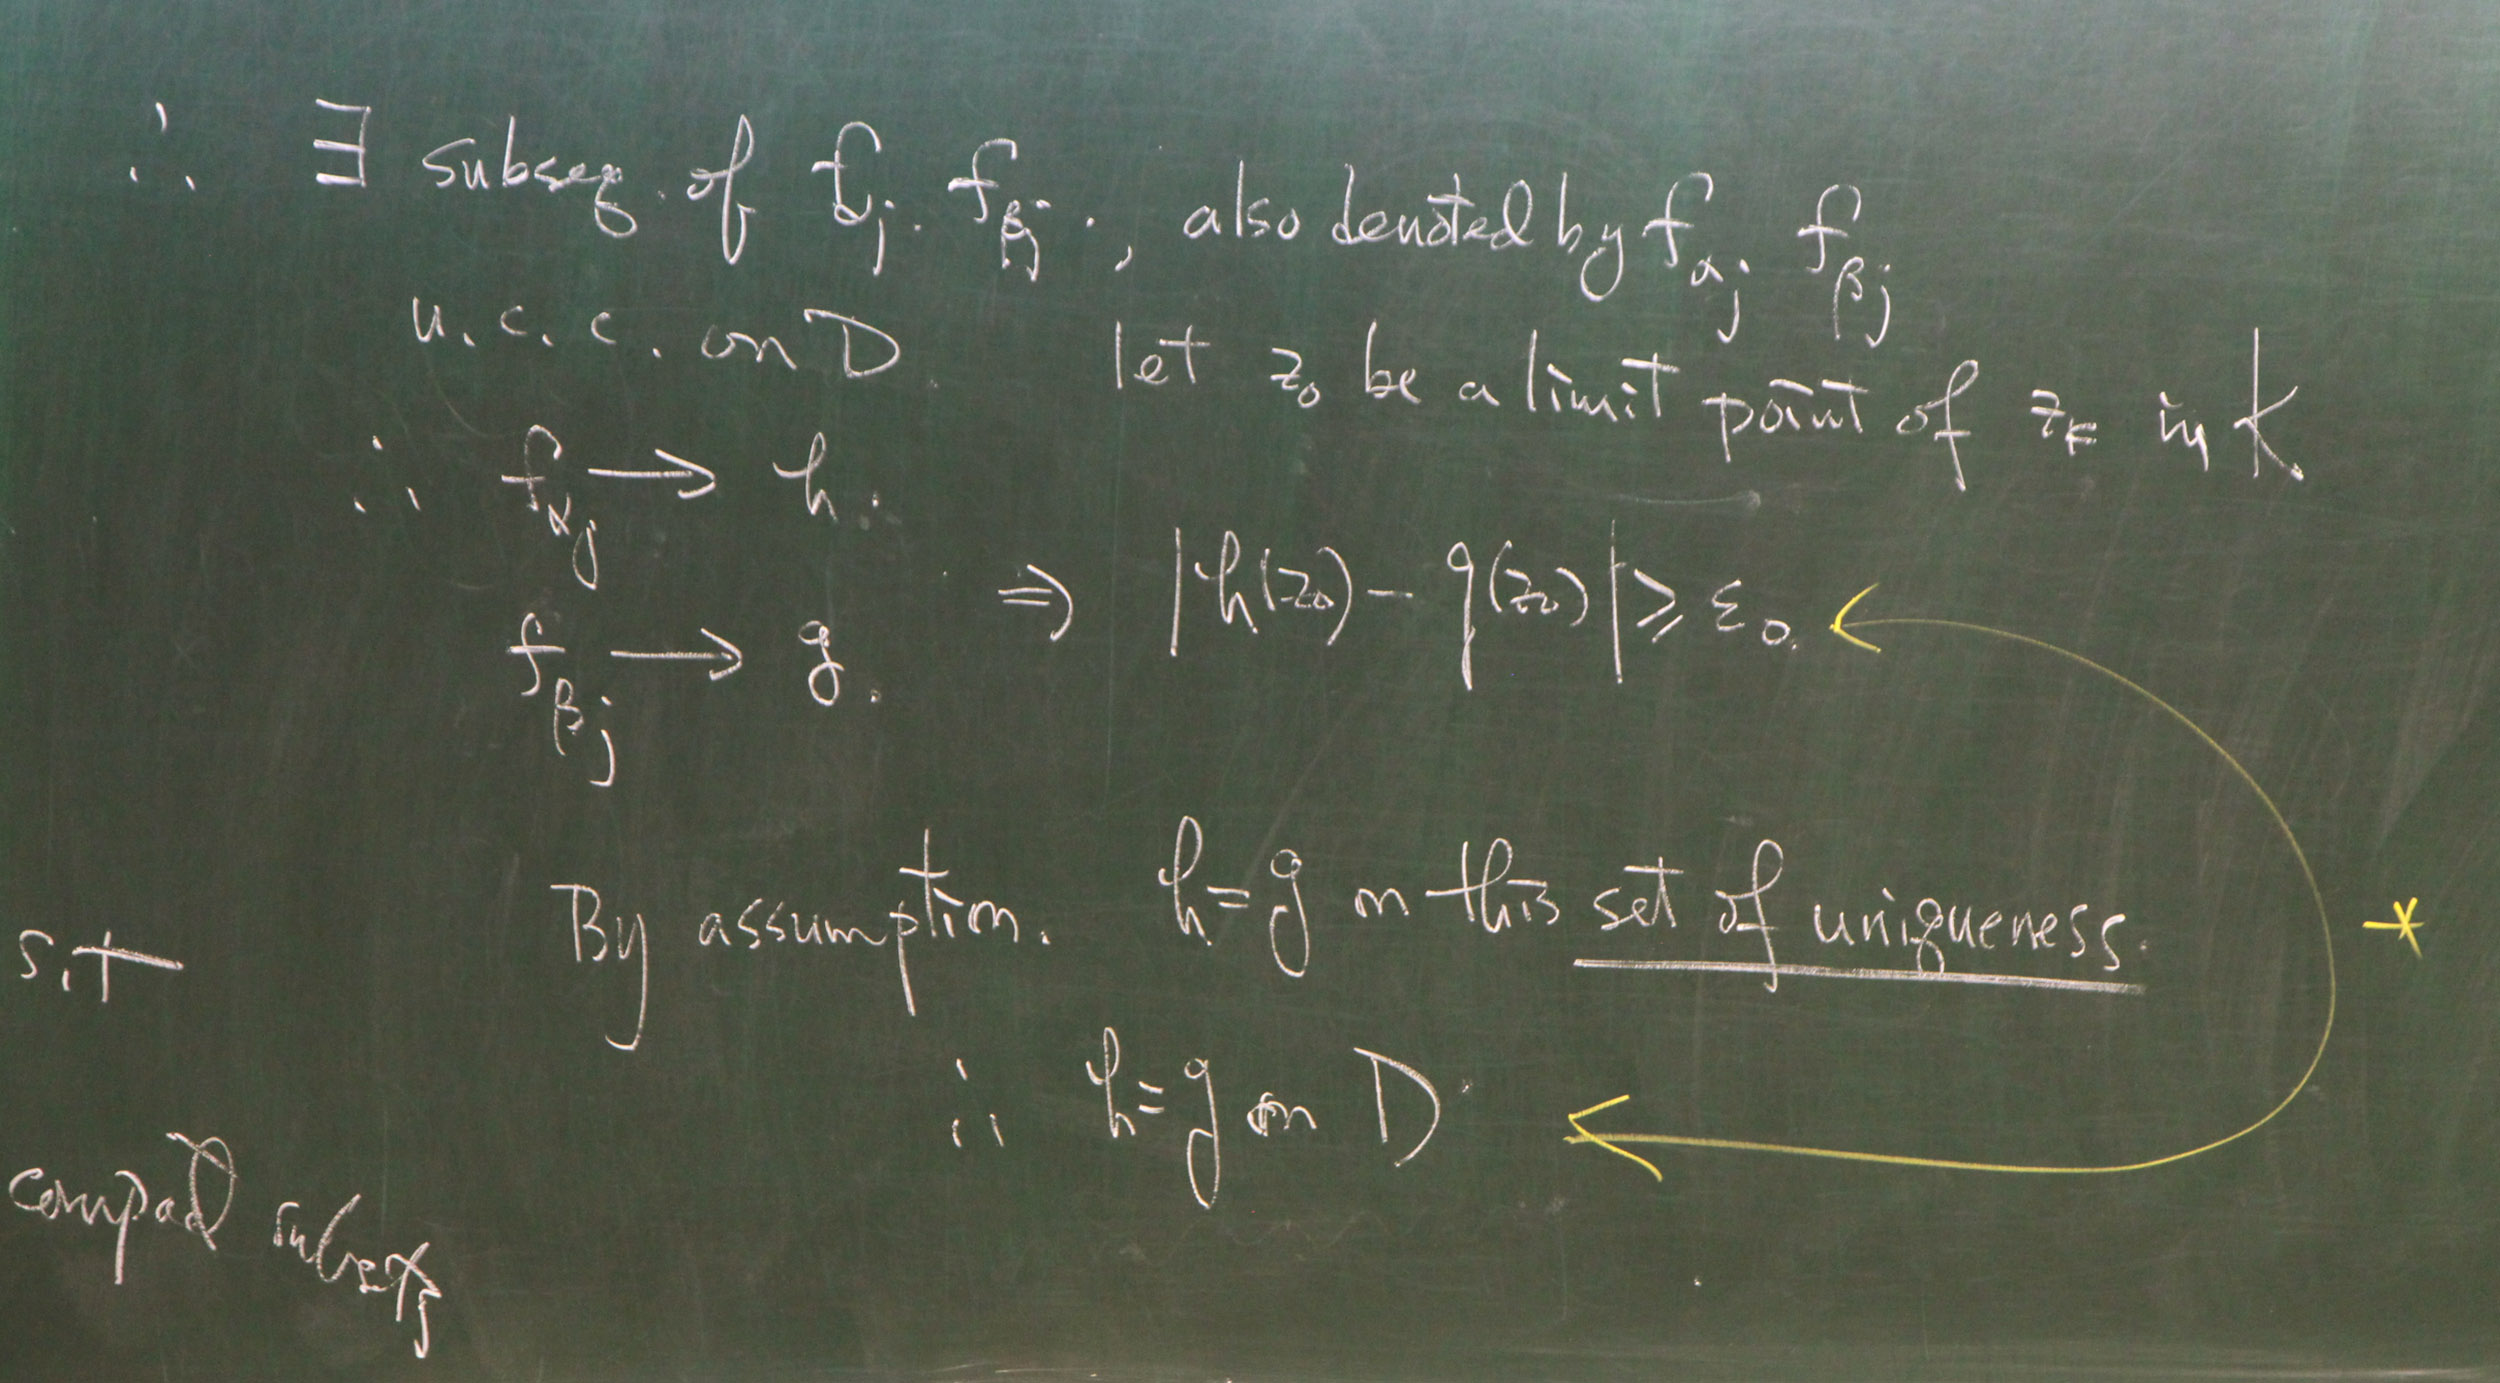 ∴ ∃ subseq. of f_αj . f_βj ., also denoted by f_αj f_βj
u. c. c. on D. let z_0 be a limit point of z_k in K.
∴ f_αj → h.
⇒ |h(z_0) - g(z_0)| ⩾ ε_0.
f_βj → g.
By assumption. h=g on this set of uniqueness.
*
s.t
∴ h=g on D.
compact